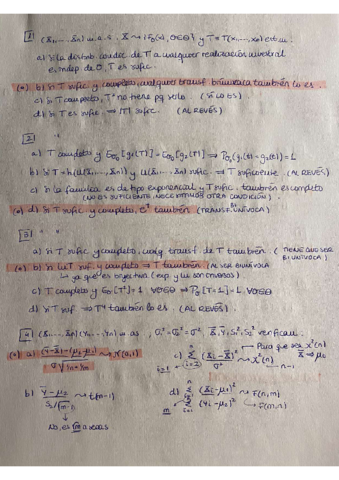 1 (X1,..., Xn) m.a.s. X → {Fθ(x), θ∈Θ} y T = T(x1,..., xn) estim.
a) Si la distrib. condic. de T a cualquier realización muestral
e indep. de θ, T es sufic.
(*) b) Si T sufic y completo, cualquier transf. biunívoca también lo es.
c) Si T completo, T² no tiene pq serlo. (SI LO ES)
d) Si T es sufic ⇒ |T| sufic. (AL REVÉS)
2 " "
a) T completo y Eθ0[g1(T)] = Eθ0[g2(T)] ⇒ Pθ0(g1(t) = g2(t)) = 1
b) Si T = h(U(X1,..., Xn)) y U(X1,..., Xn) sufic. ⇒ T suficiente (AL REVÉS)
c) Si la familia es de tipo exponencial y T sufic. también es completo
(NO ES SUFICIENTE, NECESITAMOS OTRA CONDICIÓN).
(*) d) Si T sufic y completo, e^T también (TRANSF. BIUNÍVOCA)
3 " "
a) Si T sufic y completo, cualq transf. de T también. (TIENE QUE SER BIUNÍVOCA)
(*) b) Si ln T suf. y completo ⇒ T también (AL SER BIUNÍVOCA
↳ ya que es biyectiva (exp. y ln son inversas)
c) T completo y Eθ[T²] = 1, ∀θ∈Θ ⇒ Pθ[T=1] = 1, ∀θ∈Θ
d) Si T suf ⇒ T⁴ también lo es. (AL REVÉS)
4 (X1,..., Xn) (Y1,..., Yn) m.a.s, σ1² = σ2² = σ², X̄, Ȳ, S1², S2² verifican:
→ Para que sea χ²(n)
(*) a) (Ȳ-X̄)-(μ2-μ1) / σ√(1/n+1/m) → N(0,1)
c) Σ (Xi-X̄)² / σ² → χ²(n) X̄ → μ1
i=1 n-1
b) Ȳ-μ2 / S2/√(m-1) → t(m-1)
d) Σ (Xi-μ1)² / Σ (Yi-μ2)² → F(n,m)
→ F(n,m)
No, es √m a secas